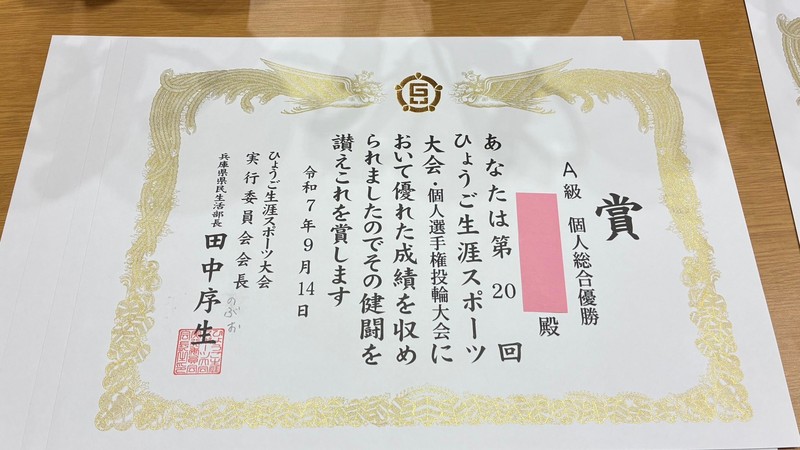 賞
A級 個人総合優勝
殿
あなたは第20回
ひょうご生涯スポーツ
大会・個人選手権投輪大会に
おいて優れた成績を収め
られましたのでその健闘を
讃えこれを賞します
令和7年9月14日
ひょうご生涯スポーツ大会
実行委員会会長
兵庫県県民生活部長 田中序生
のぶお